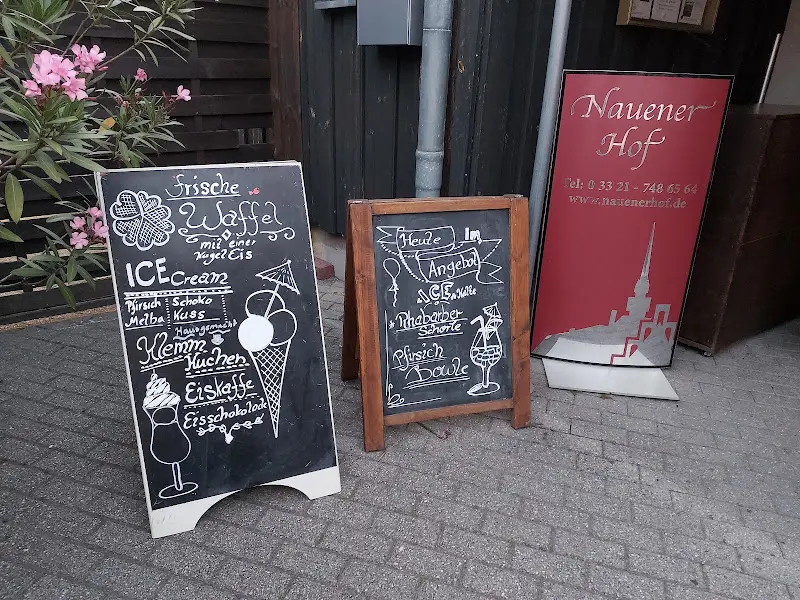 frische
Waffel
mit einer
Kugel Eis
ICE Cream
Pfirsich Melba
Schoko Kuss
Hausgemacht
Klemm
Kuchen
Eiskaffe
Eisschokolade
Heute Im
Angebot
Rhabarber-
Schorle
Pfirsich
Bowle
Nauener
Hof
Tel: 0 33 21 - 748 65 64
www.nauenerhof.de